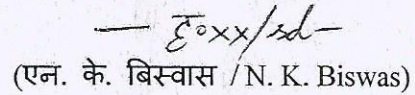 — ह०xx/sd—
(एन. के. बिस्वास / N. K. Biswas)